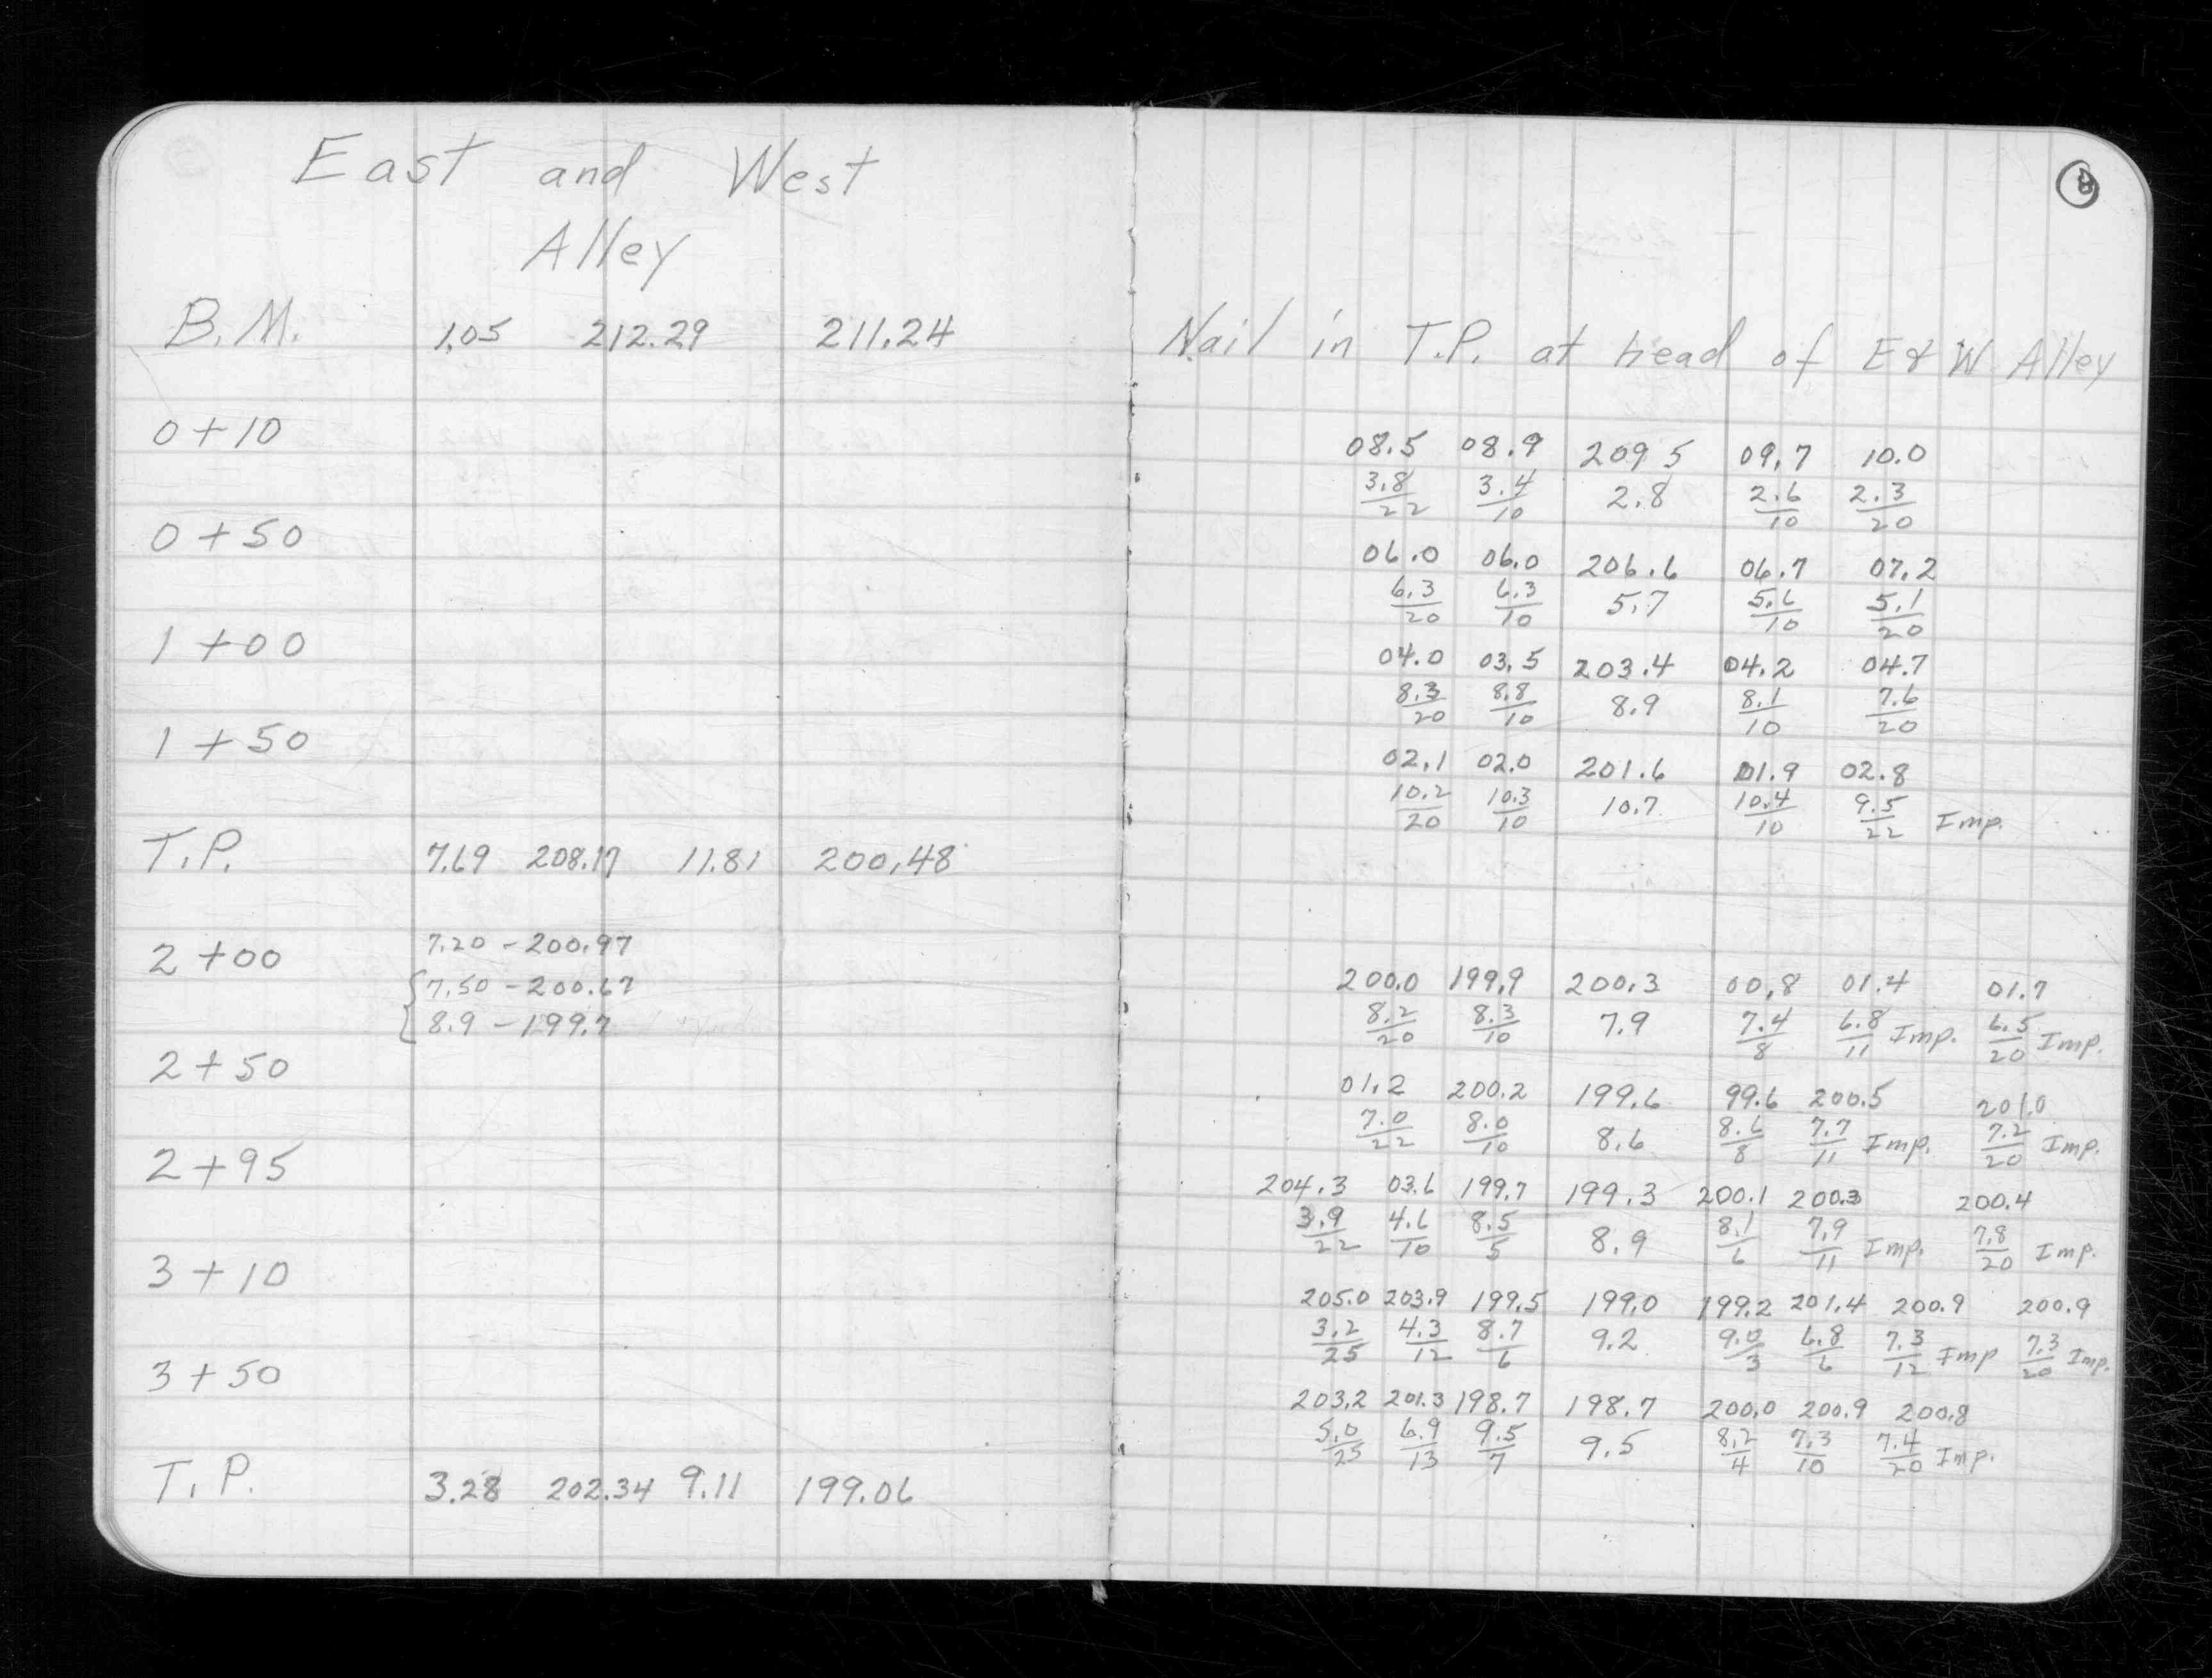 East and West
Alley
B.M. 1.05 212.29 211.24
0+10
0+50
1+00
1+50
T.P. 7.69 208.17 11.81 200.48
2+00 7.20 - 200.97
7.50 - 200.67
8.9 - 199.7
2+50
2+95
3+10
3+50
T.P. 3.28 202.34 9.11 199.06
8
Nail in T.P. at head of E & W Alley
08.5 08.9 209 5 09.7 10.0
3.8/22 3.4/10 2.8 2.6/10 2.3/20
06.0 06.0 206.6 06.7 07.2
6.3/20 6.3/10 5.7 5.6/10 5.1/20
04.0 03.5 203.4 04.2 04.7
8.3/20 8.8/10 8.9 8.1/10 7.6/20
02.1 02.0 201.6 01.9 02.8
10.2/20 10.3/10 10.7 10.4/10 9.5/22 Imp.
200.0 199.9 200.3 00.8 01.4 01.7
8.2/20 8.3/10 7.9 7.4/8 6.8/11 Imp. 6.5/20 Imp.
01.2 200.2 199.6 99.6 200.5 201.0
7.0/22 8.0/10 8.6 8.6/8 7.7/11 Imp. 7.2/20 Imp.
204.3 03.6 199.7 199.3 200.1 200.3 200.4
3.9/22 4.6/10 8.5/5 8.9 8.1/6 7.9/11 Imp. 7.8/20 Imp.
205.0 203.9 199.5 199.0 199.2 201.4 200.9 200.9
3.2/25 4.3/12 8.7/6 9.2 9.0/3 6.8/6 7.3/12 Imp 7.3/20 Imp.
203.2 201.3 198.7 198.7 200.0 200.9 200.8
5.0/25 6.9/13 9.5/7 9.5 8.2/4 7.3/10 7.4/20 Imp.